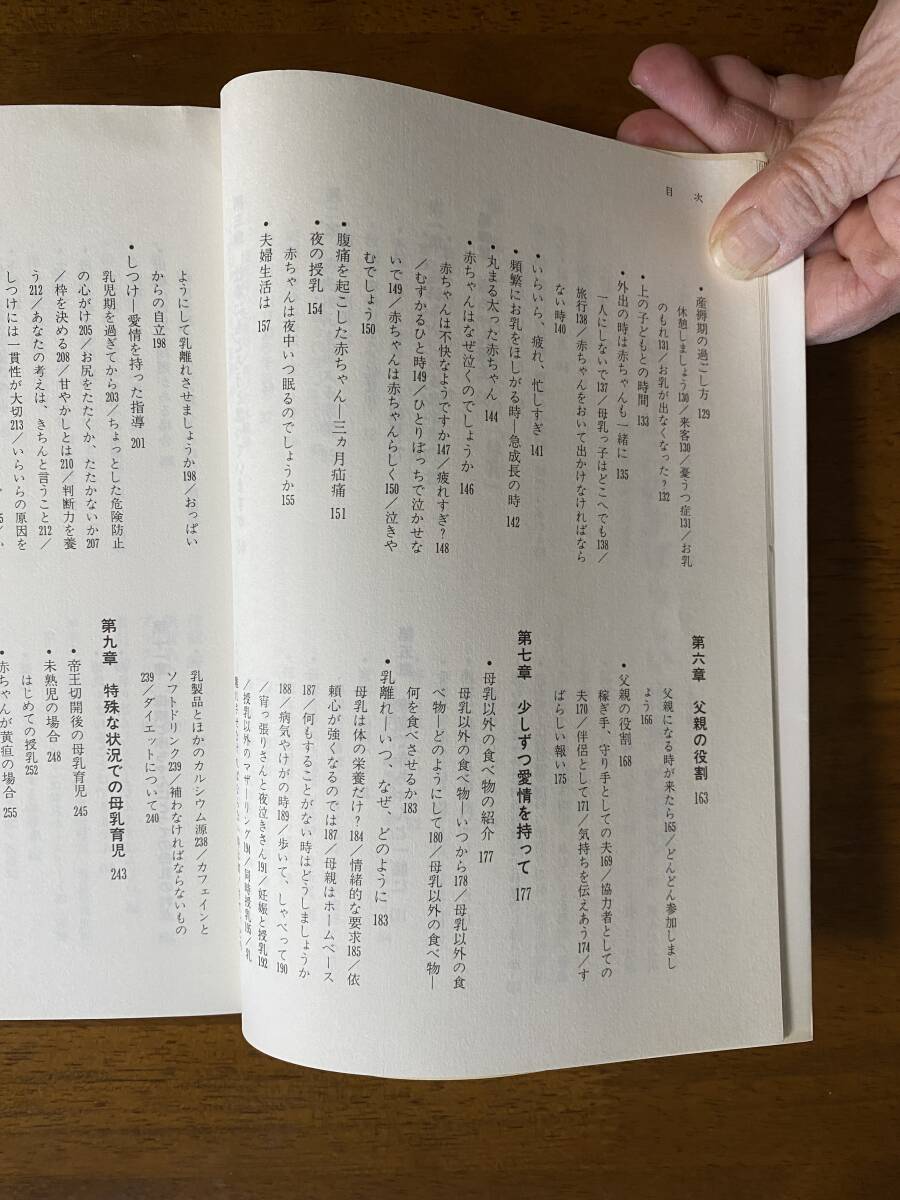 目次
・産褥期の過ごし方 129
休憩しましょう130/来客130/憂うつ症131/お乳
のもれ131/お乳が出なくなった?132
・上の子どもとの時間 133
・外出の時は赤ちゃんも一緒に 135
一人にしないで137/母乳っ子はどこへでも138/
旅行138/赤ちゃんをおいて出かけなければなら
ない時140
・いらいら、疲れ、忙しすぎ 141
・頻繁にお乳をほしがる時―急成長の時 142
・丸まる太った赤ちゃん 144
・赤ちゃんはなぜ泣くのでしょうか 146
赤ちゃんは不快なようですか147/疲れすぎ?148
/むずかるひと時149/ひとりぼっちで泣かせな
いで149/赤ちゃんは赤ちゃんらしく150/泣きや
むでしょう150
・腹痛を起こした赤ちゃん―三ヵ月疝痛 151
・夜の授乳 154
赤ちゃんは夜中いつ眠るのでしょうか155
・夫婦生活は 157
第六章 父親の役割 163
父親になる時が来たら165/どんどん参加しまし
ょう166
・父親の役割 168
稼ぎ手、守り手としての夫169/協力者としての
夫170/伴侶として171/気持ちを伝えあう174/す
ばらしい報い175
第七章 少しずつ愛情を持って 177
・母乳以外の食べ物の紹介 177
母乳以外の食べ物―いつから178/母乳以外の食
べ物―どのようにして180/母乳以外の食べ物―
何を食べさせるか183
・乳離れ―いつ、なぜ、どのように 183
母乳は体の栄養だけ?184/情緒的な要求185/依
頼心が強くなるのでは187/母親はホームベース
187/何もすることがない時はどうしましょうか
188/病気やけがの時189/歩いて、しゃべって190
/宵っ張りさんと夜泣きさん191/妊娠と授乳192
/授乳以外のマザーリング194/同時授乳195/乳
ようにして乳離れさせましょうか198/おっぱい
からの自立198
・しつけ―愛情を持った指導 201
乳児期を過ぎてから203/ちょっとした危険防止
の心がけ205/お尻をたたくか、たたかないか207
/枠を決める208/甘やかしとは210/判断力を養
う212/あなたの考えは、きちんと言うこと212/
しつけには一貫性が大切213/いらいらの原因を
乳製品とほかのカルシウム源238/カフェインと
ソフトドリンク239/補わなければならないもの
239/ダイエットについて240
第九章 特殊な状況での母乳育児 243
・帝王切開後の母乳育児 245
・未熟児の場合 248
はじめての授乳252
・赤ちゃんが黄疸の場合 255